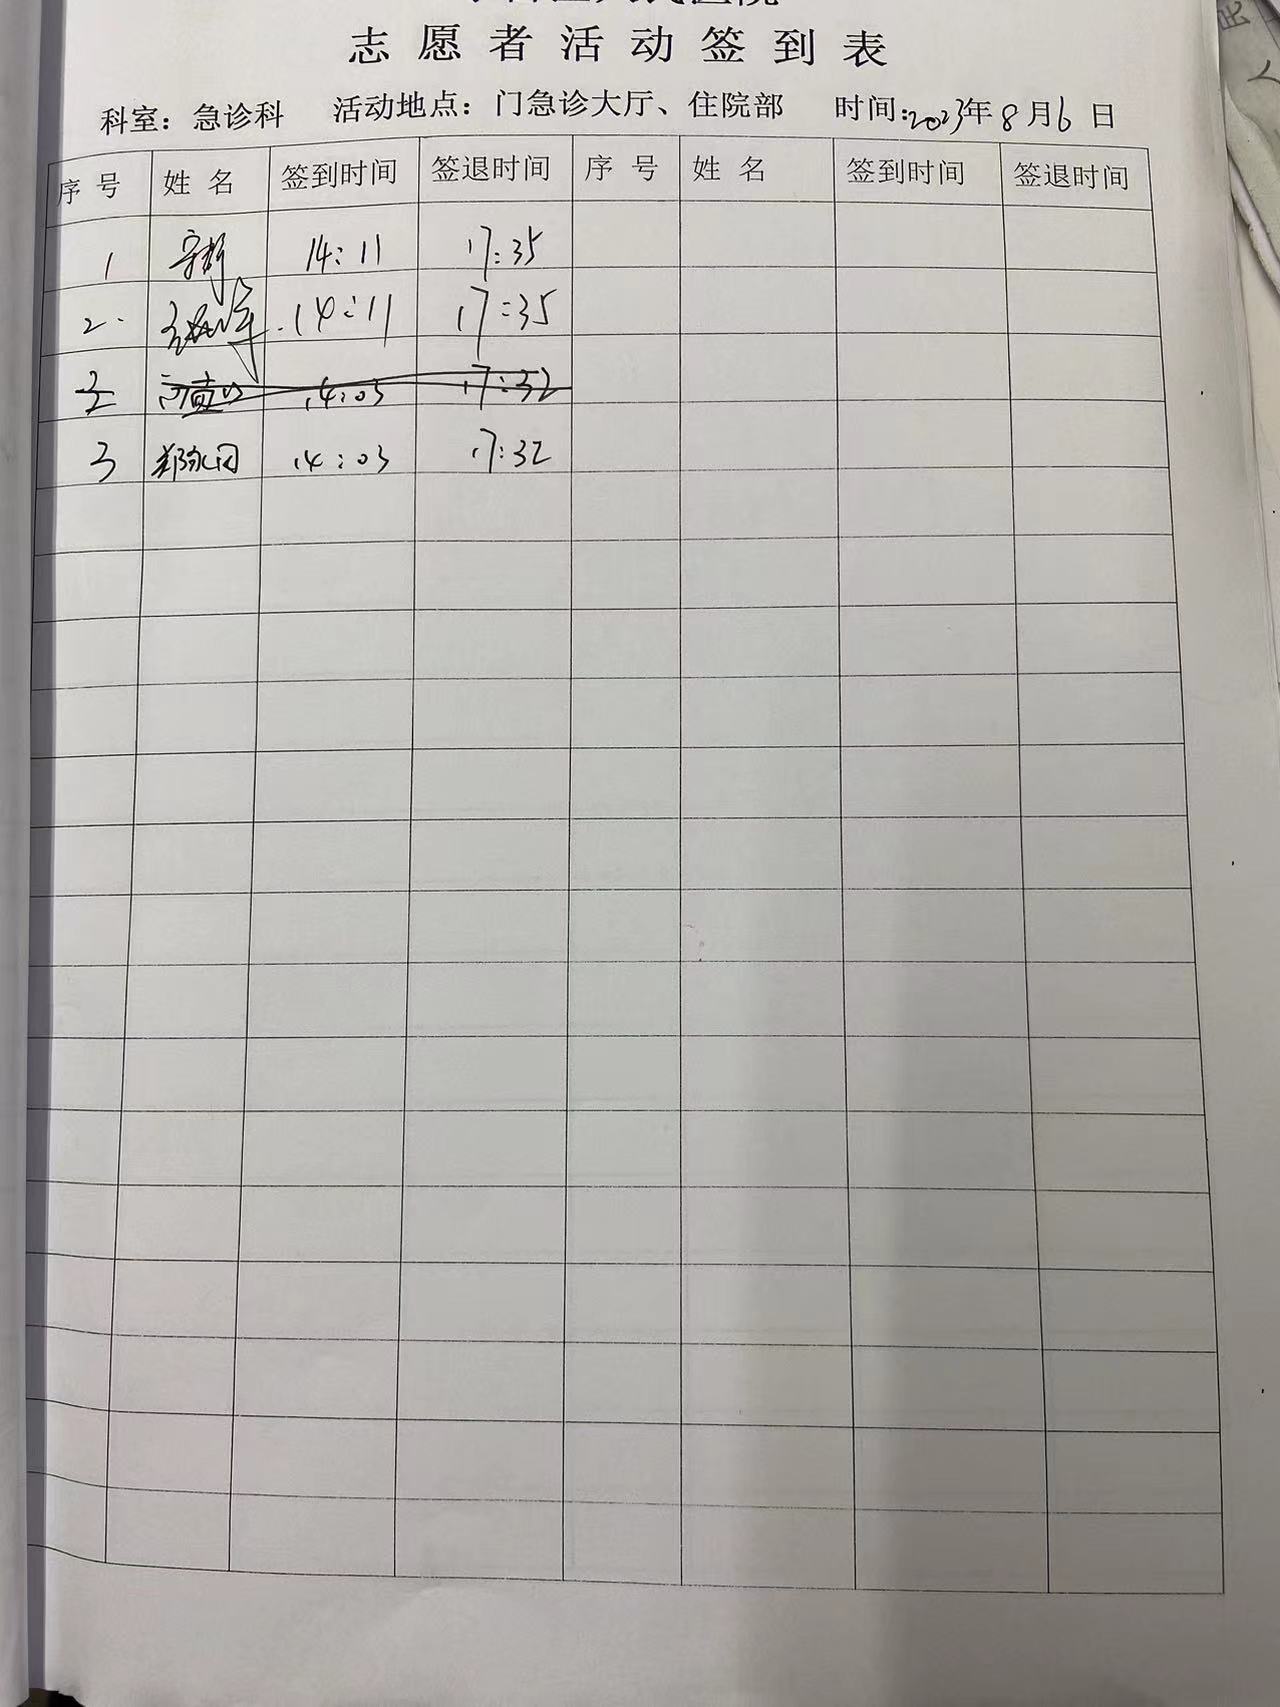 志愿者活动签到表
科室：急诊科 活动地点：门急诊大厅、住院部 时间：2023年8月6日
序号 姓名 签到时间 签退时间 序号 姓名 签到时间 签退时间
1 14:11 17:35
2. 14:11 17:35
3 14:03 17:32
3 郑永闪 14:03 17:32